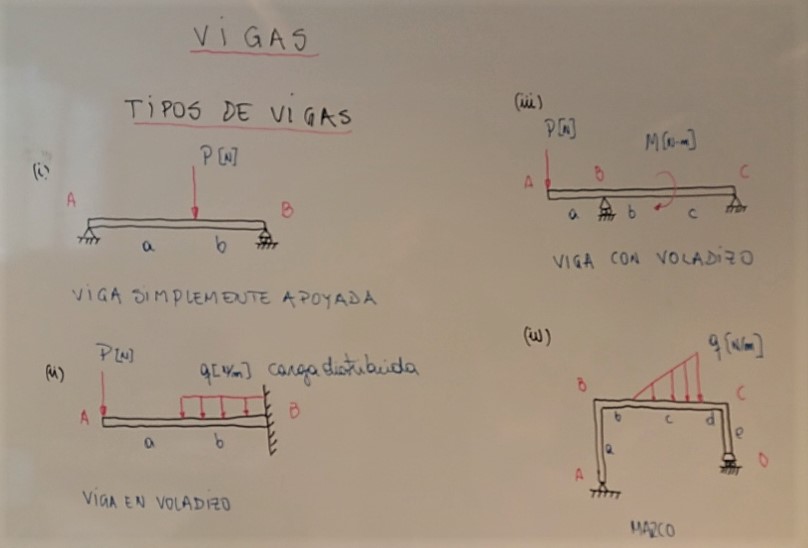 VIGAS
TIPOS DE VIGAS
(i)
P[N]
A
B
a
b
VIGA SIMPLEMENTE APOYADA
(ii)
P[N]
q[N/m] carga distribuida
A
B
a
b
VIGA EN VOLADIZO
(iii)
P[N]
M[N-m]
A
B
C
a
b
c
VIGA CON VOLADIZO
(iv)
q[N/m]
B
C
b
c
d
a
e
A
D
MARCO